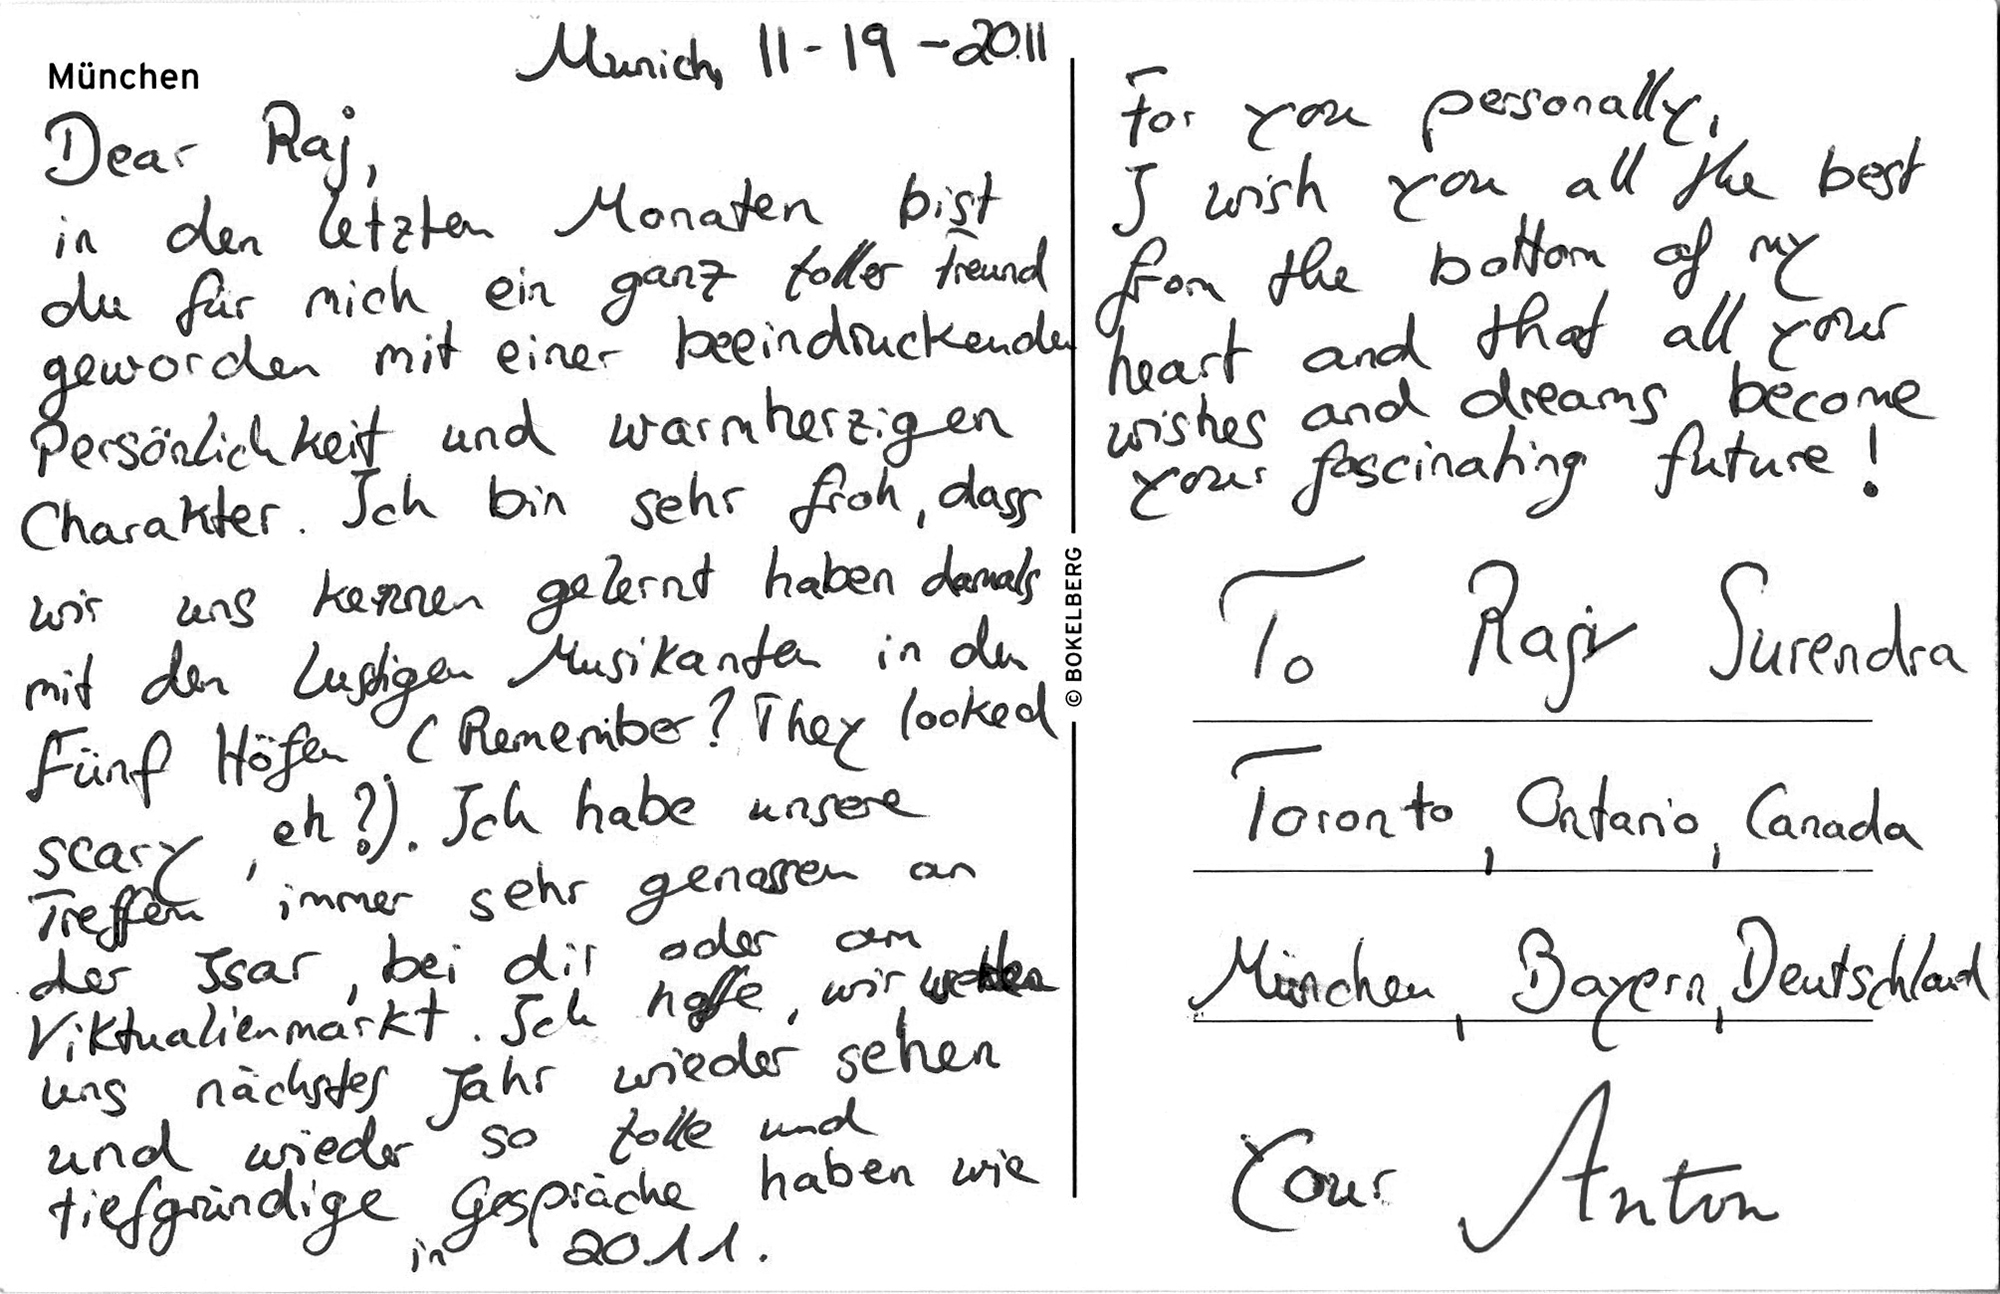 München
Munich, 11-19-2011
Dear Raj,
in den letzten Monaten bist
du für mich ein ganz toller Freund
geworden mit einer beeindruckenden
Persönlichkeit und warmherzigen
Charakter. Ich bin sehr froh, dass
wir uns kennen gelernt haben damals
mit den lustigen Musikanten in den
Fünf Höfen (Remember? They looked
scary, eh?). Ich habe unsere
Treffen immer sehr genossen an
der Isar, bei dir oder am
Viktualienmarkt. Ich hoffe, wir werden
uns nächstes Jahr wieder sehen
und wieder so tolle und
tiefgründige Gespräche haben wie
in 2011.
© BOKELBERG
For you personally,
I wish you all the best
from the bottom of my
heart and that all your
wishes and dreams become
your fascinating future!
To Rajiv Surendra
Toronto, Ontario, Canada
München, Bayern, Deutschland
Your Anton